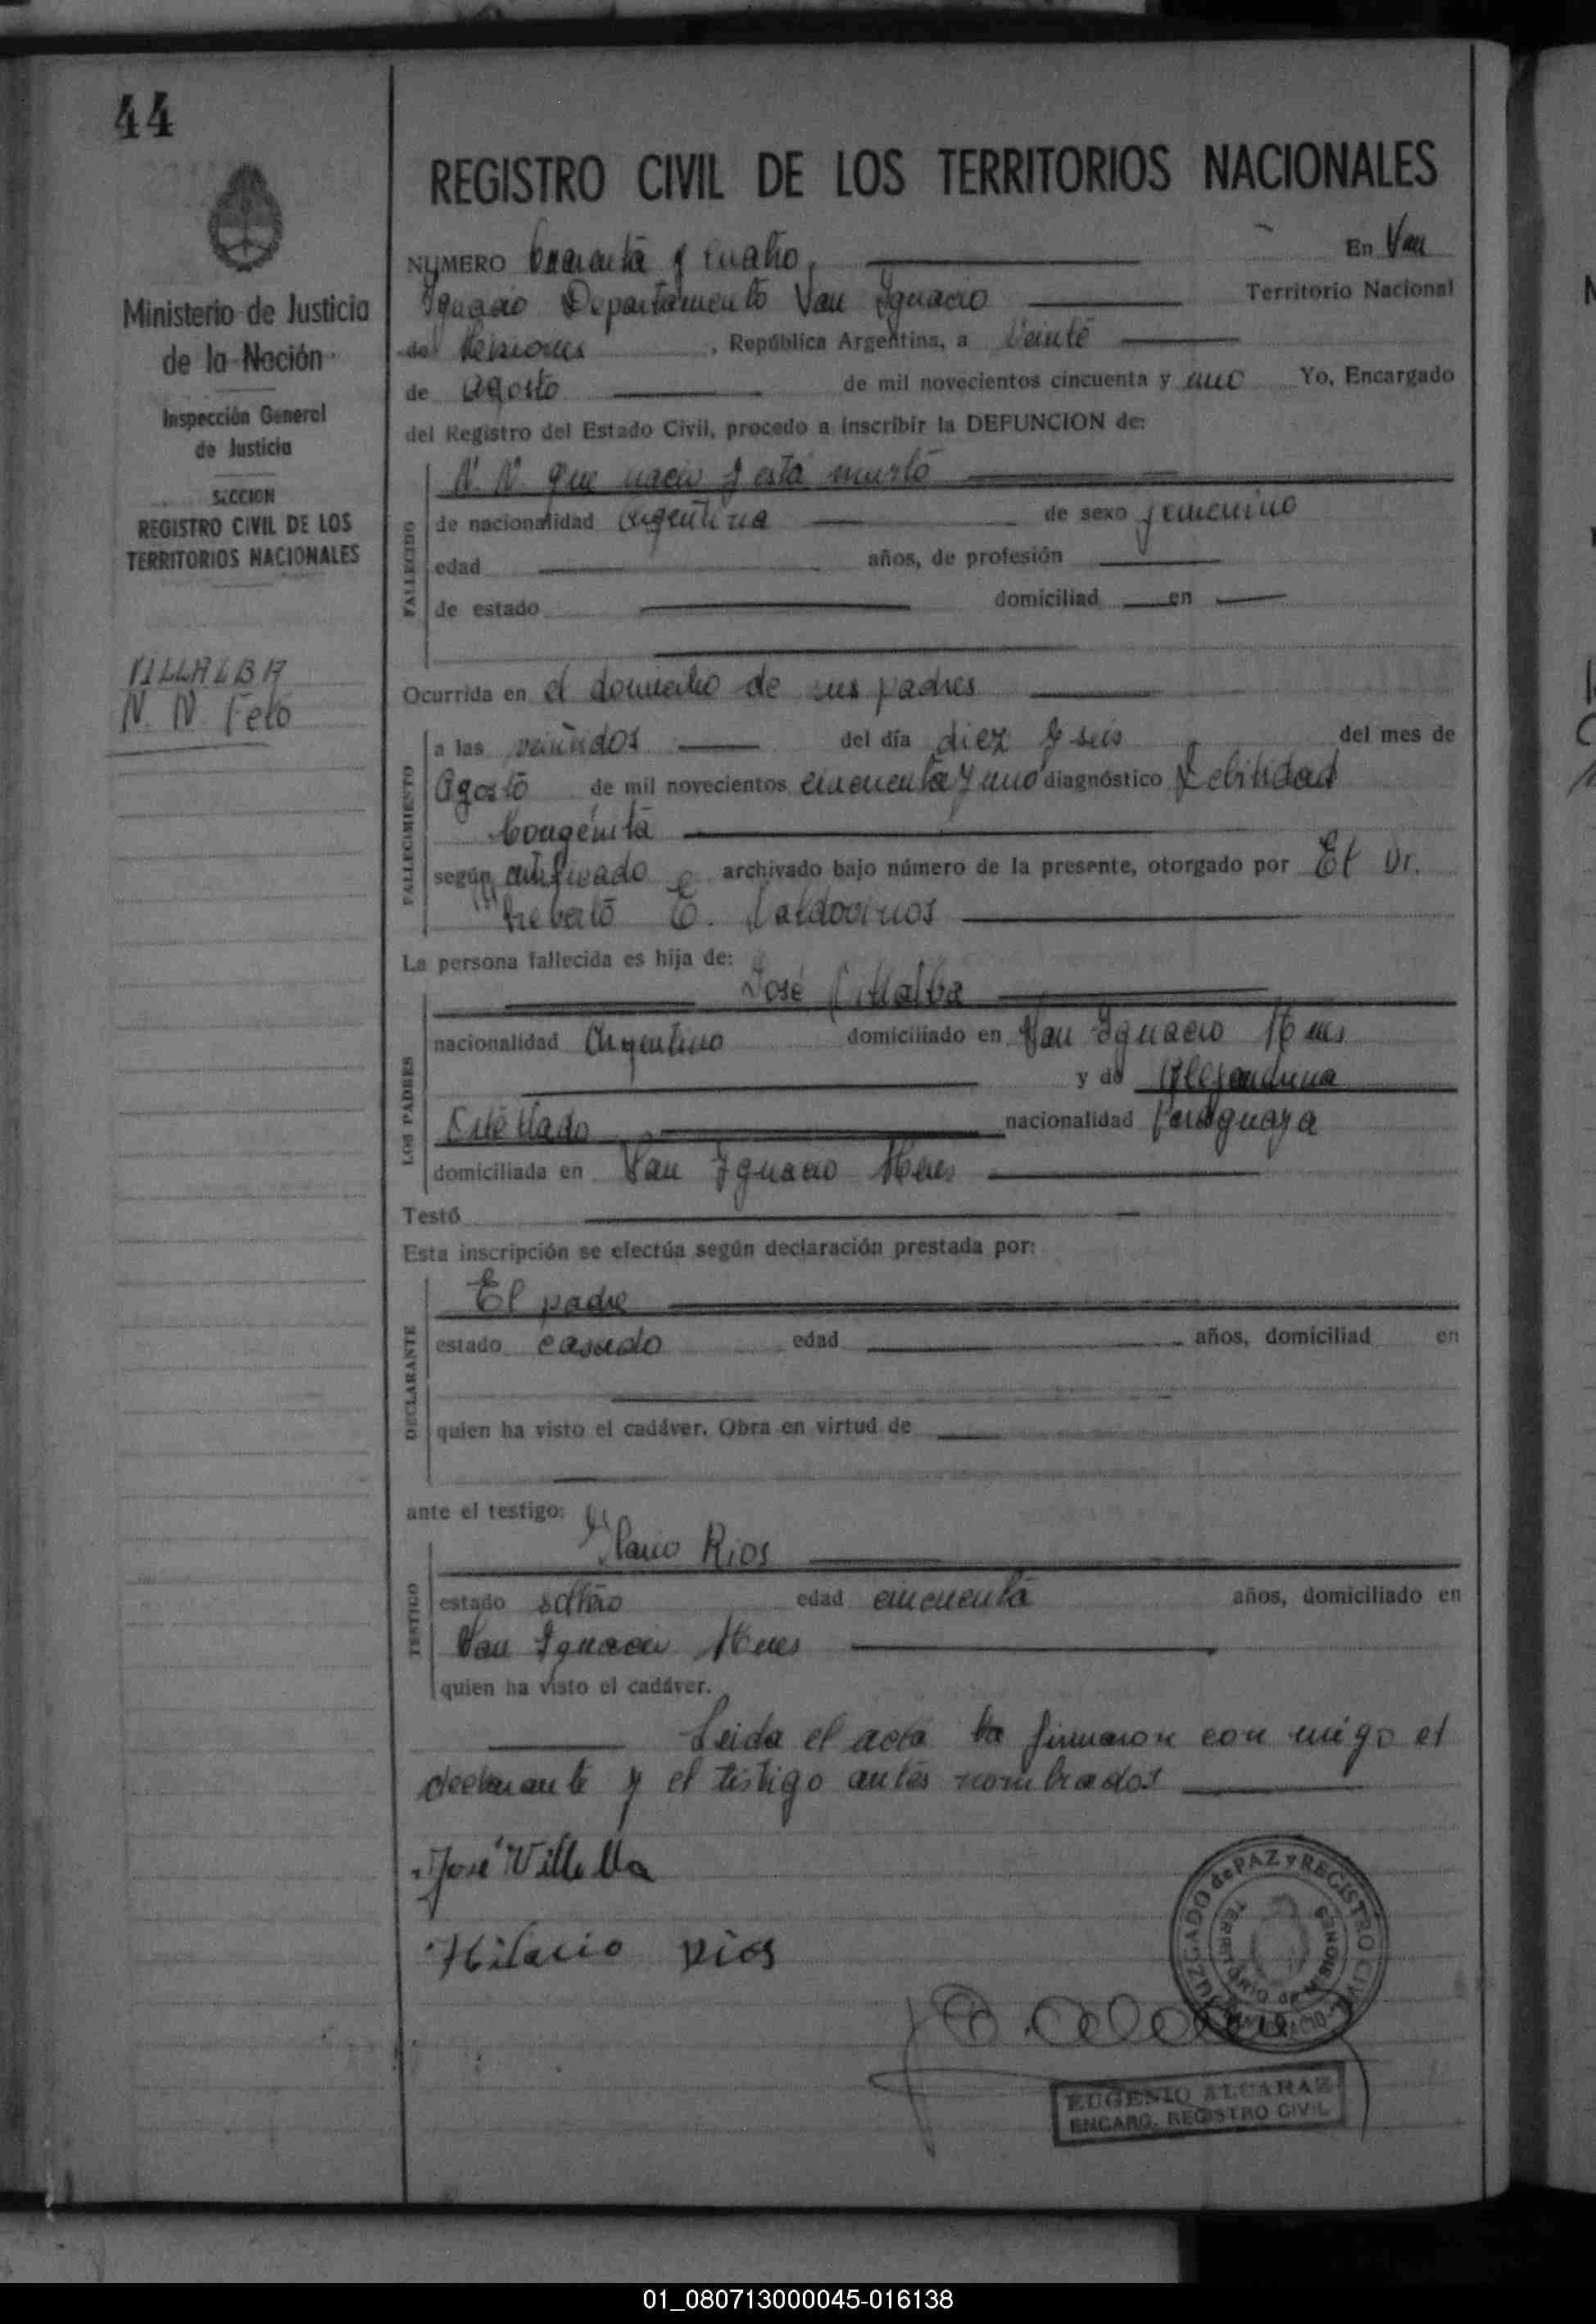 44
REGISTRO CIVIL DE LOS TERRITORIOS NACIONALES
Ministerio de Justicia
de la Nación
Inspección General
de Justicia
SECCION
REGISTRO CIVIL DE LOS
TERRITORIOS NACIONALES
VILLALBA
N. N. Feto
NUMERO Cuarenta y cuatro. En San
Ignacio Departamento San Ignacio Territorio Nacional
de Misiones, República Argentina, a veinte
de Agosto de mil novecientos cincuenta y uno Yo, Encargado
del Registro del Estado Civil, procedo a inscribir la DEFUNCION de:
FALLECIDO
N. N. que nacio y está muerto
de nacionalidad argentina de sexo femenino
edad años, de profesión
de estado domiciliad en
Ocurrida en el domicilio de sus padres
FALLECIMIENTO
a las veintidos del día diez y seis del mes de
Agosto de mil novecientos cincuenta y uno diagnóstico Debilidad
Congénita
según certificado archivado bajo número de la presente, otorgado por El Dr.
E. Valdovinos
La persona fallecida es hija de:
LOS PADRES
José Villalba
nacionalidad Argentino domiciliado en San Ignacio Mnes
y de Alejandrina
nacionalidad Paraguaya
domiciliada en San Ignacio Mnes
Testó
Esta inscripción se efectúa según declaración prestada por:
DECLARANTE
El padre
estado casado edad años, domiciliad en
quien ha visto el cadáver. Obra en virtud de
ante el testigo:
TESTIGO
Ilario Rios
estado soltero edad cincuenta años, domiciliado en
San Ignacio Mnes
quien ha visto el cadáver.
Leida el acta la firmaron con migo el
declarante y el testigo antes nombrados
José Villalba
Hilario Rios
JUZGADO de PAZ y REGISTRO CIVIL
TERRITORIO de MISIONES
SAN IGNACIO
EUGENIO ALCARAZ
ENCARG. REGISTRO CIVIL
01_080713000045-016138